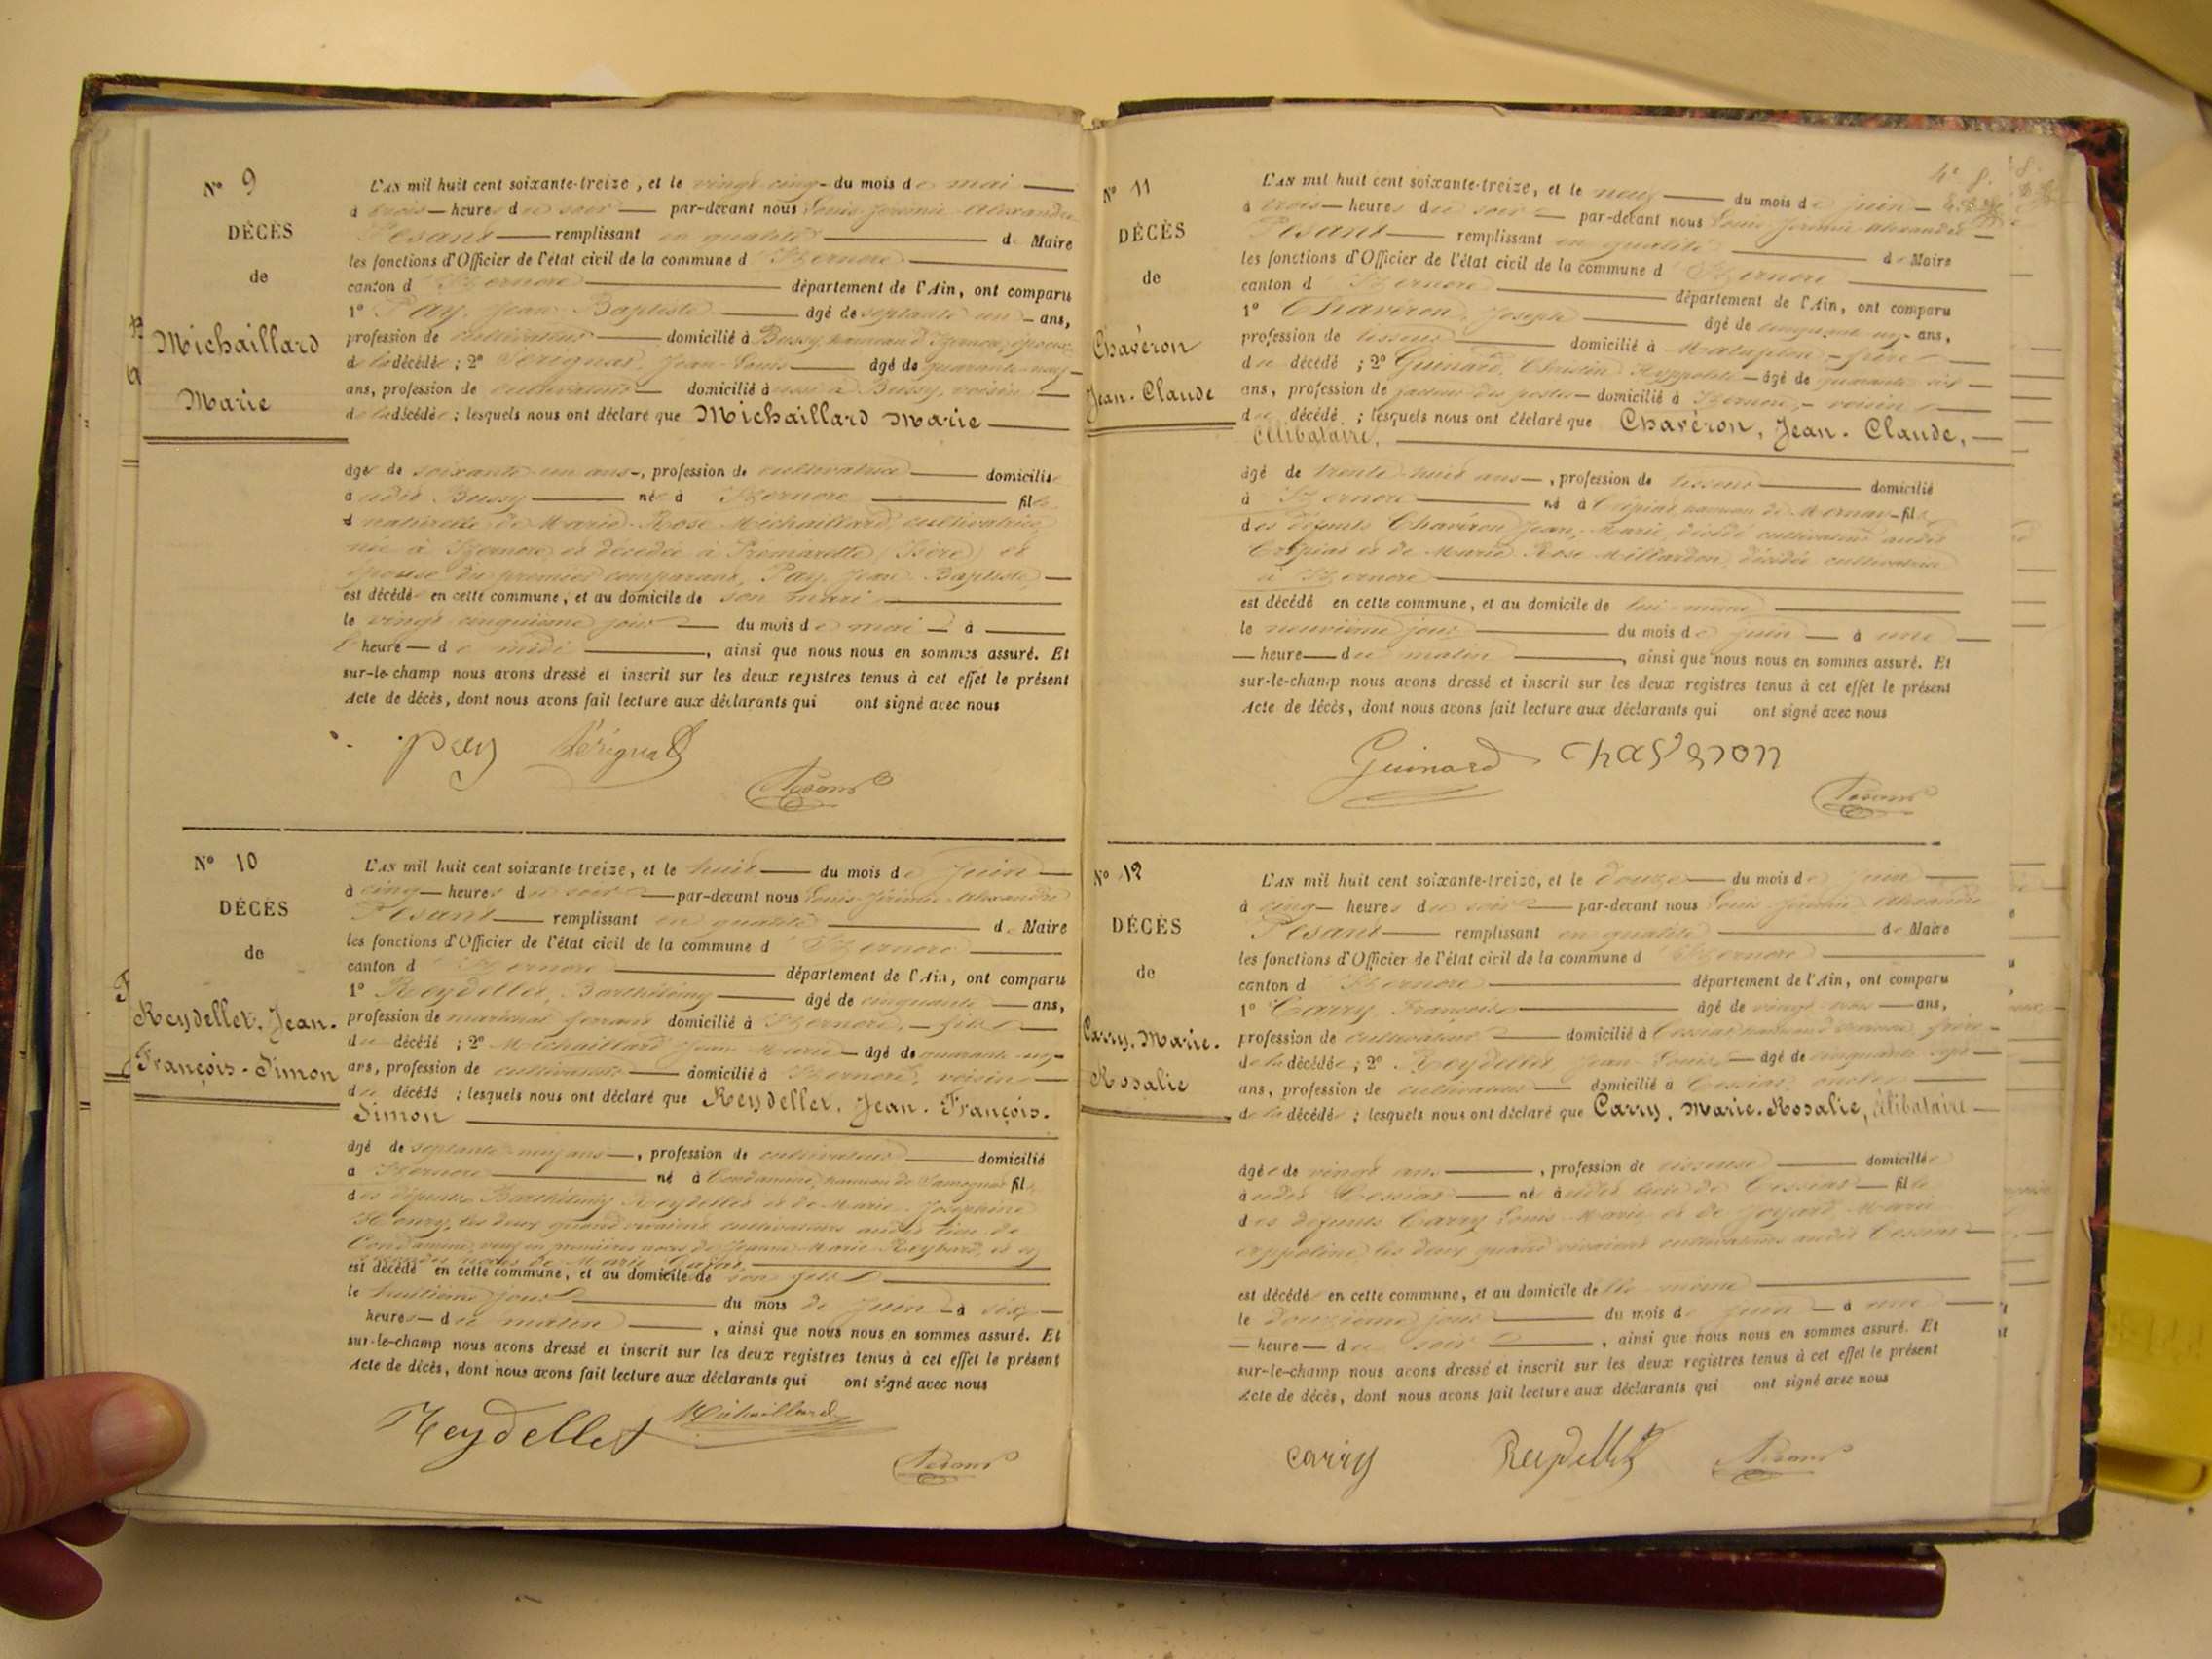 N° 9
DÉCÈS
de
Michaillard
Marie
L'AN mil huit cent soixante-treize, et le vingt cinq du mois de mai
à trois heures du soir par-devant nous Louis Jérémie Alexandre
Pesant remplissant en qualité de Maire
les fonctions d'Officier de l'état civil de la commune d'Izernore
canton d'Izernore département de l'Ain, ont comparu
1° Pay, Jean Baptiste âgé de septante un ans,
profession de cultivateur domicilié à Bussy, hameau d'Izernore, époux
de la décédée ; 2° Jean Louis âgé de quarante neuf
ans, profession de cultivateur domicilié à Bussy, voisin
de la décédée ; lesquels nous ont déclaré que Michaillard Marie
âgée de soixante un ans, profession de cultivatrice domiciliée
à udit Bussy née à Izernore fille
naturelle de Marie Rose Michaillard, cultivatrice
née à Izernore et décédée à (Isère) et
épouse du premier comparant, Pay, Jean Baptiste,
est décédée en cette commune, et au domicile de son mari
le vingt cinquième jour du mois de mai à
l'heure de midi, ainsi que nous nous en sommes assuré. Et
sur-le-champ nous avons dressé et inscrit sur les deux registres tenus à cet effet le présent
Acte de décès, dont nous avons fait lecture aux déclarants qui ont signé avec nous
Pay
Pesant
N° 10
DÉCÈS
de
Reydellet, Jean-
François-Simon
L'AN mil huit cent soixante-treize, et le huit du mois de Juin
à cinq heures du soir par-devant nous Louis Jérémie Alexandre
Pesant remplissant en qualité de Maire
les fonctions d'Officier de l'état civil de la commune d'Izernore
canton d'Izernore département de l'Ain, ont comparu
1° Reydellet, Barthélemy âgé de cinquante ans,
profession de maréchal ferrant domicilié à Izernore, fils
du décédé ; 2° Michaillard Jean Marie âgé de quarante
ans, profession de cultivateur domicilié à Izernore, voisin
du décédé ; lesquels nous ont déclaré que Reydellet, Jean-François-
Simon
âgé de septante neuf ans, profession de cultivateur domicilié
à Izernore né à Condamine, hameau de Samognat fils
des défunts Barthélemy Reydellet et de Marie Joséphine
les deux quand vivaient cultivateurs audit lieu de
Condamine, veuf en premières noces de Jeanne Marie et en
secondes noces de Marie
est décédé en cette commune, et au domicile de son fils
le huitième jour du mois de Juin à six
heures du matin, ainsi que nous nous en sommes assuré. Et
sur-le-champ nous avons dressé et inscrit sur les deux registres tenus à cet effet le présent
Acte de décès, dont nous avons fait lecture aux déclarants qui ont signé avec nous
Reydellet Michaillard
Pesant
N° 11
DÉCÈS
de
Chavéron
Jean-Claude
L'AN mil huit cent soixante-treize, et le neuf du mois de juin
à trois heures du soir par-devant nous Louis Jérémie Alexandre
Pesant remplissant en qualité de Maire
les fonctions d'Officier de l'état civil de la commune d'Izernore
canton d'Izernore département de l'Ain, ont comparu
1° Chavéron, Joseph âgé de cinquante ans,
profession de tisseur domicilié à Matafelon, frère
du décédé ; 2° Guinard, Christin Hyppolite âgé de quarante six
ans, profession de facteur des postes domicilié à Izernore, voisin
du décédé ; lesquels nous ont déclaré que Chavéron, Jean-Claude,
célibataire,
âgé de trente huit ans, profession de tisseur domicilié
à Izernore né à Crépiat hameau de Mornay fils
des défunts Chavéron Jean, Marie, décédé cultivateur audit
Crépiat et de Marie Rose décédée cultivatrice
à Izernore
est décédé en cette commune, et au domicile de lui-même
le neuvième jour du mois de juin à une
heure du matin, ainsi que nous nous en sommes assuré. Et
sur-le-champ nous avons dressé et inscrit sur les deux registres tenus à cet effet le présent
Acte de décès, dont nous avons fait lecture aux déclarants qui ont signé avec nous
Guinard Chaveron
Pesant
N° 12
DÉCÈS
de
Carry, Marie-
Rosalie
L'AN mil huit cent soixante-treize, et le douze du mois de juin
à cinq heures du soir par-devant nous Louis Jérémie Alexandre
Pesant remplissant en qualité de Maire
les fonctions d'Officier de l'état civil de la commune d'Izernore
canton d'Izernore département de l'Ain, ont comparu
1° Carry François âgé de vingt trois ans,
profession de cultivateur domicilié à Cessiat hameau d'Izernore, frère
de la décédée ; 2° Reydellet Jean Louis âgé de cinquante
ans, profession de cultivateur domicilié à Cessiat, oncle
de la décédée ; lesquels nous ont déclaré que Carry, Marie-Rosalie, célibataire
âgée de vingt ans, profession de tisseuse domiciliée
à udit Cessiat née audit lieu de Cessiat fille
des défunts Carry Louis Marie et de Joyard Marie
Appoline, les deux quand vivaient cultivateurs audit Cessiat
est décédée en cette commune, et au domicile d'elle même
le douzième jour du mois de juin à une
heure du soir, ainsi que nous nous en sommes assuré. Et
sur-le-champ nous avons dressé et inscrit sur les deux registres tenus à cet effet le présent
Acte de décès, dont nous avons fait lecture aux déclarants qui ont signé avec nous
Carry Reydellet Pesant